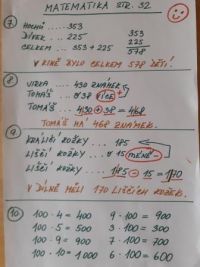 MATEMATIKA STR. 32
7. HOCHŮ .... 353
DÍVEK .... 225 353
CELKEM ... 353 + 225 225
578
V KINĚ BYLO CELKEM 578 DĚTÍ!
8. VIRKA .... 430 ZNÁMEK
TOMÁŠ .... O 38 VÍCE +
TOMÁŠ .... 430 + 38 = 468
TOMÁŠ MÁ 468 ZNÁMEK.
9. KRÁLIČÍ KOŽKY ... 185
LIŠČÍ KOŽKY .... O 15 MÉNĚ -
LIŠČÍ KOŽKY .... 185 - 15 = 170
V DÍLNĚ MĚLI 170 LIŠČÍCH KOŽEK.
10. 100 · 4 = 400 9 · 100 = 900
100 · 5 = 500 3 · 100 = 300
100 · 9 = 900 7 · 100 = 700
100 · 10 = 1000 6 · 100 = 600